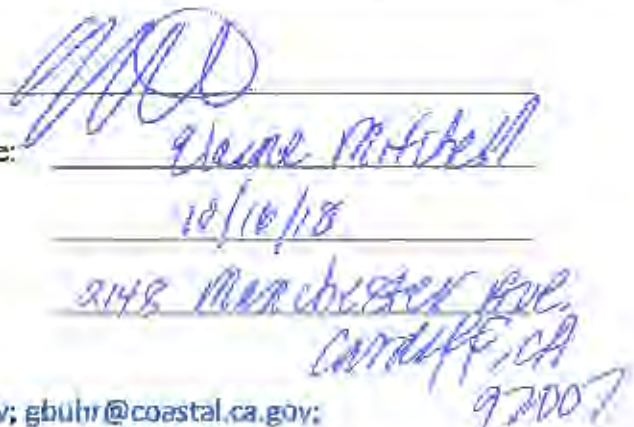 e:
Elaine Mitchell
10/16/18
2148 Manchester Ave.
Cardiff, CA
92007
v; gbuhr@coastal.ca.gov;